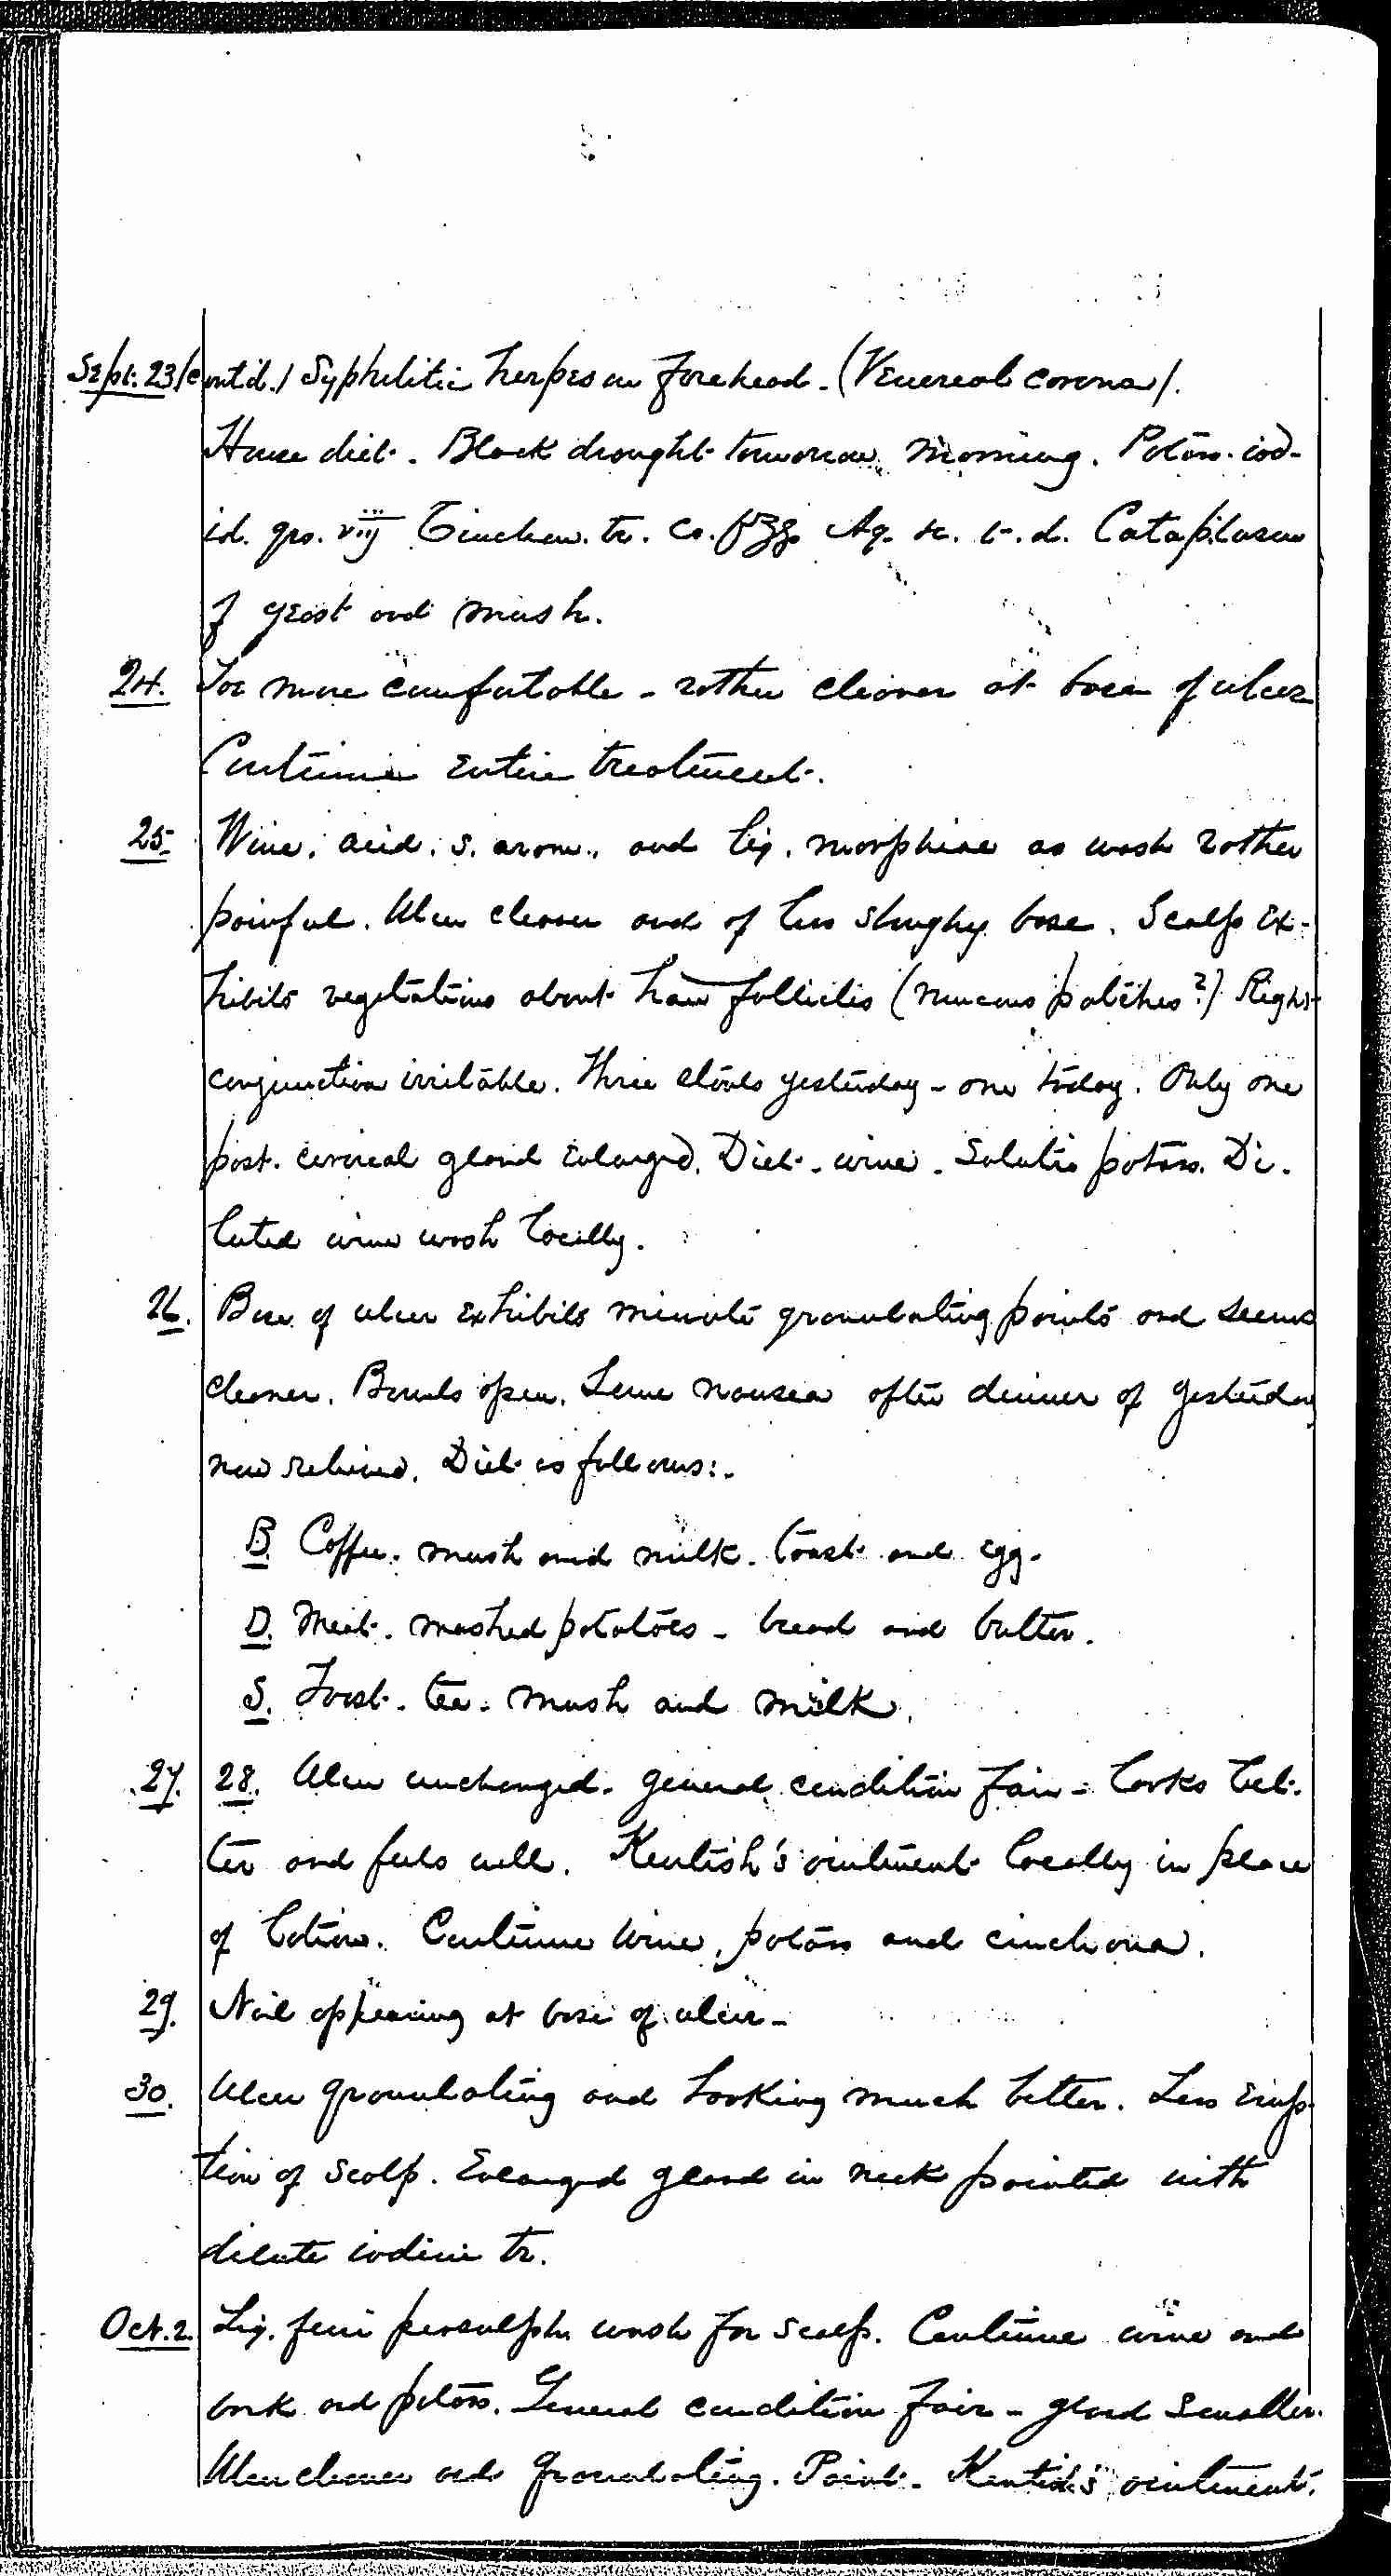 Sept. 23/contd./ Syphilitic herpes on forehead - (Venereal corona/.
House diet. Black draught tomorrow morning. Potass. iod-
id. grs. viij Cinchon. tr. co. f Aq. t. d. Cataplasm
of yeast and mush.
24. Toe more comfortable - rather cleaner at base of ulcer
Continue entire treatment.
25. Wine, acid. s. arom., and liq. morphiae as wash rather
painful. Ulcer cleaner and of less sloughy base. Scalp ex-
hibits vegetations about hair follicles (mucous patches?) Right
conjunctiva irritable. Three stools yesterday - one today. Only one
post. cervical gland enlarged. Diet - wine - Solutio potass. Di-
luted wine wash locally.
26. Base of ulcer exhibits minute granulating points and seems
cleaner. Bowels open. Some nausea after dinner of yesterday
now relieved. Diet as follows:-
B. Coffee. mush and milk. toast and egg.
D. Meat. mashed potatoes - bread and butter.
S. Toast. tea. mush and milk.
27. 28. Ulcer unchanged. General condition fair - looks bet-
ter and feels well. Kentish's ointment locally in place
of lotion. Continue wine, potass and cinchona.
29. Nail appearing at base of ulcer -
30. Ulcer granulating and looking much better. Less erup-
tion of scalp. Enlarged gland in neck painted with
dilute iodine tr.
Oct. 2. Liq. ferri persulph. wash for scalp. Continue wine and
bark and potass. General condition fair - gland smaller.
Ulcer cleaner and granulating. Paint. Kentish's ointment.